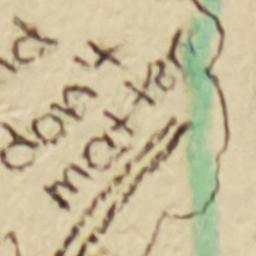 don't
matter